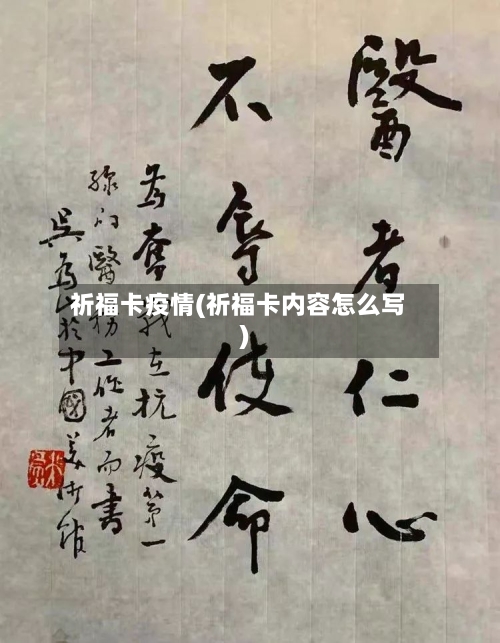 醫者仁心
不辱使命
为奮战在抗疫第一
线的醫务工作者而書
吴为山於中國美术馆
祈福卡疫情(祈福卡内容怎么写
)